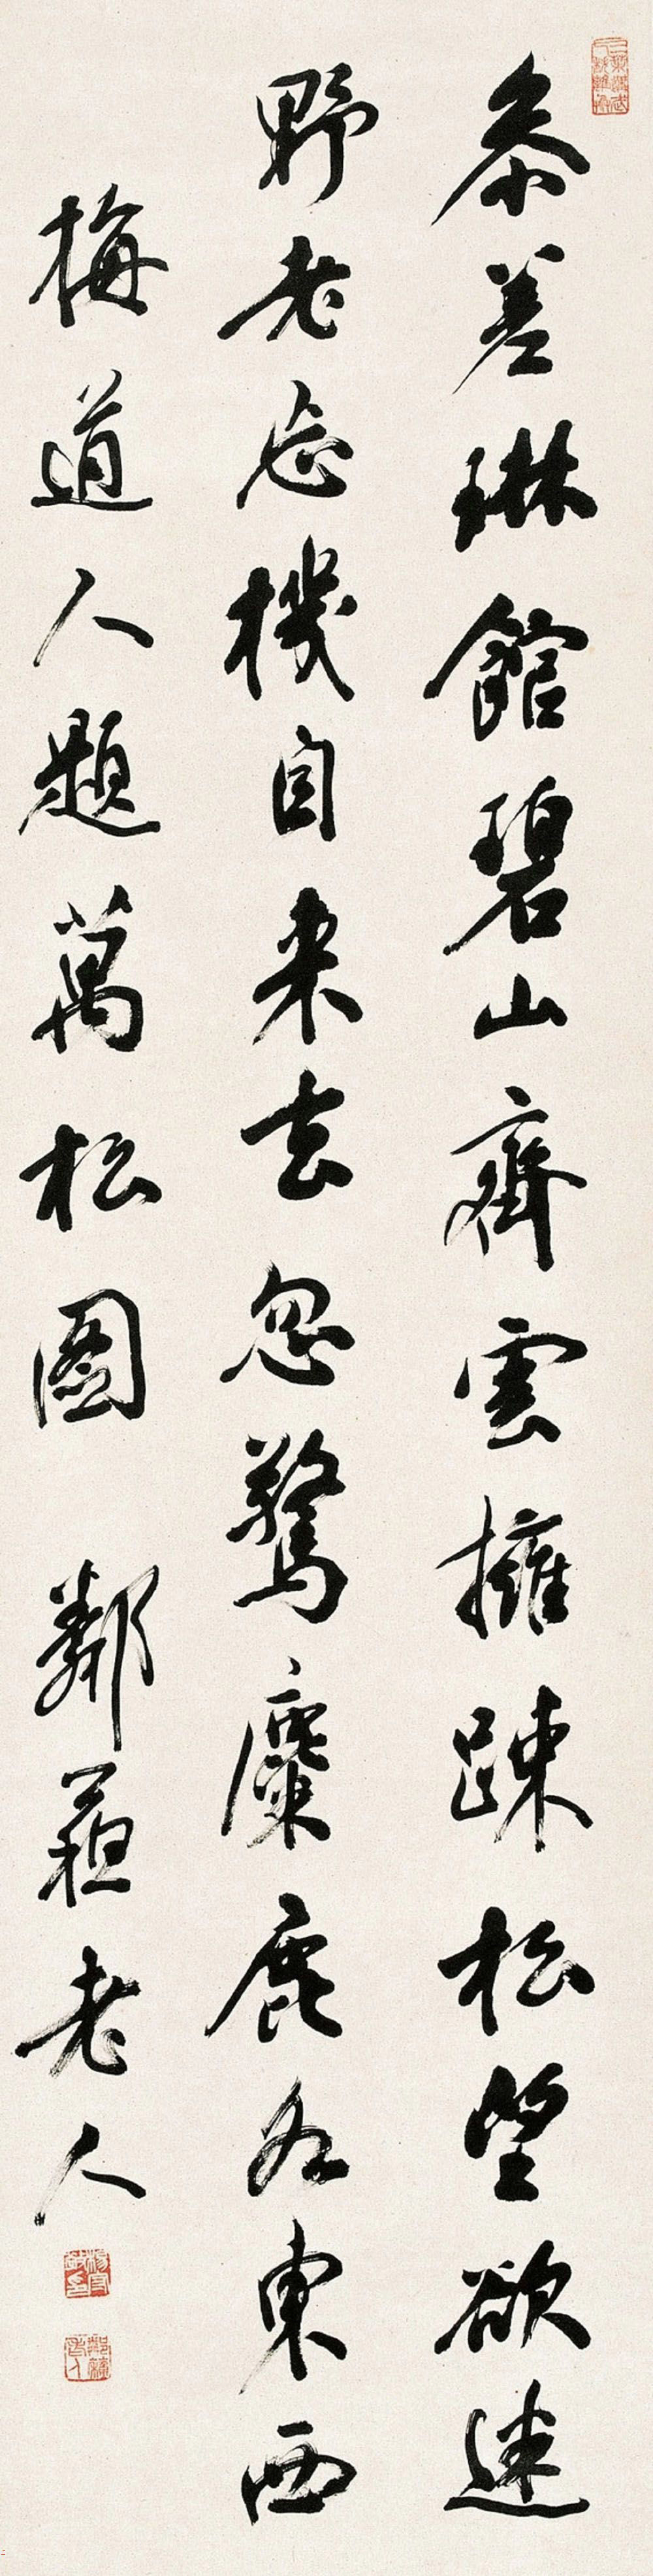 參差琳館碧山齊雲擁踈松望欲迷
野老忘機自来去忽驚麋鹿各東西
梅道人題萬松圖 鄰蘓老人